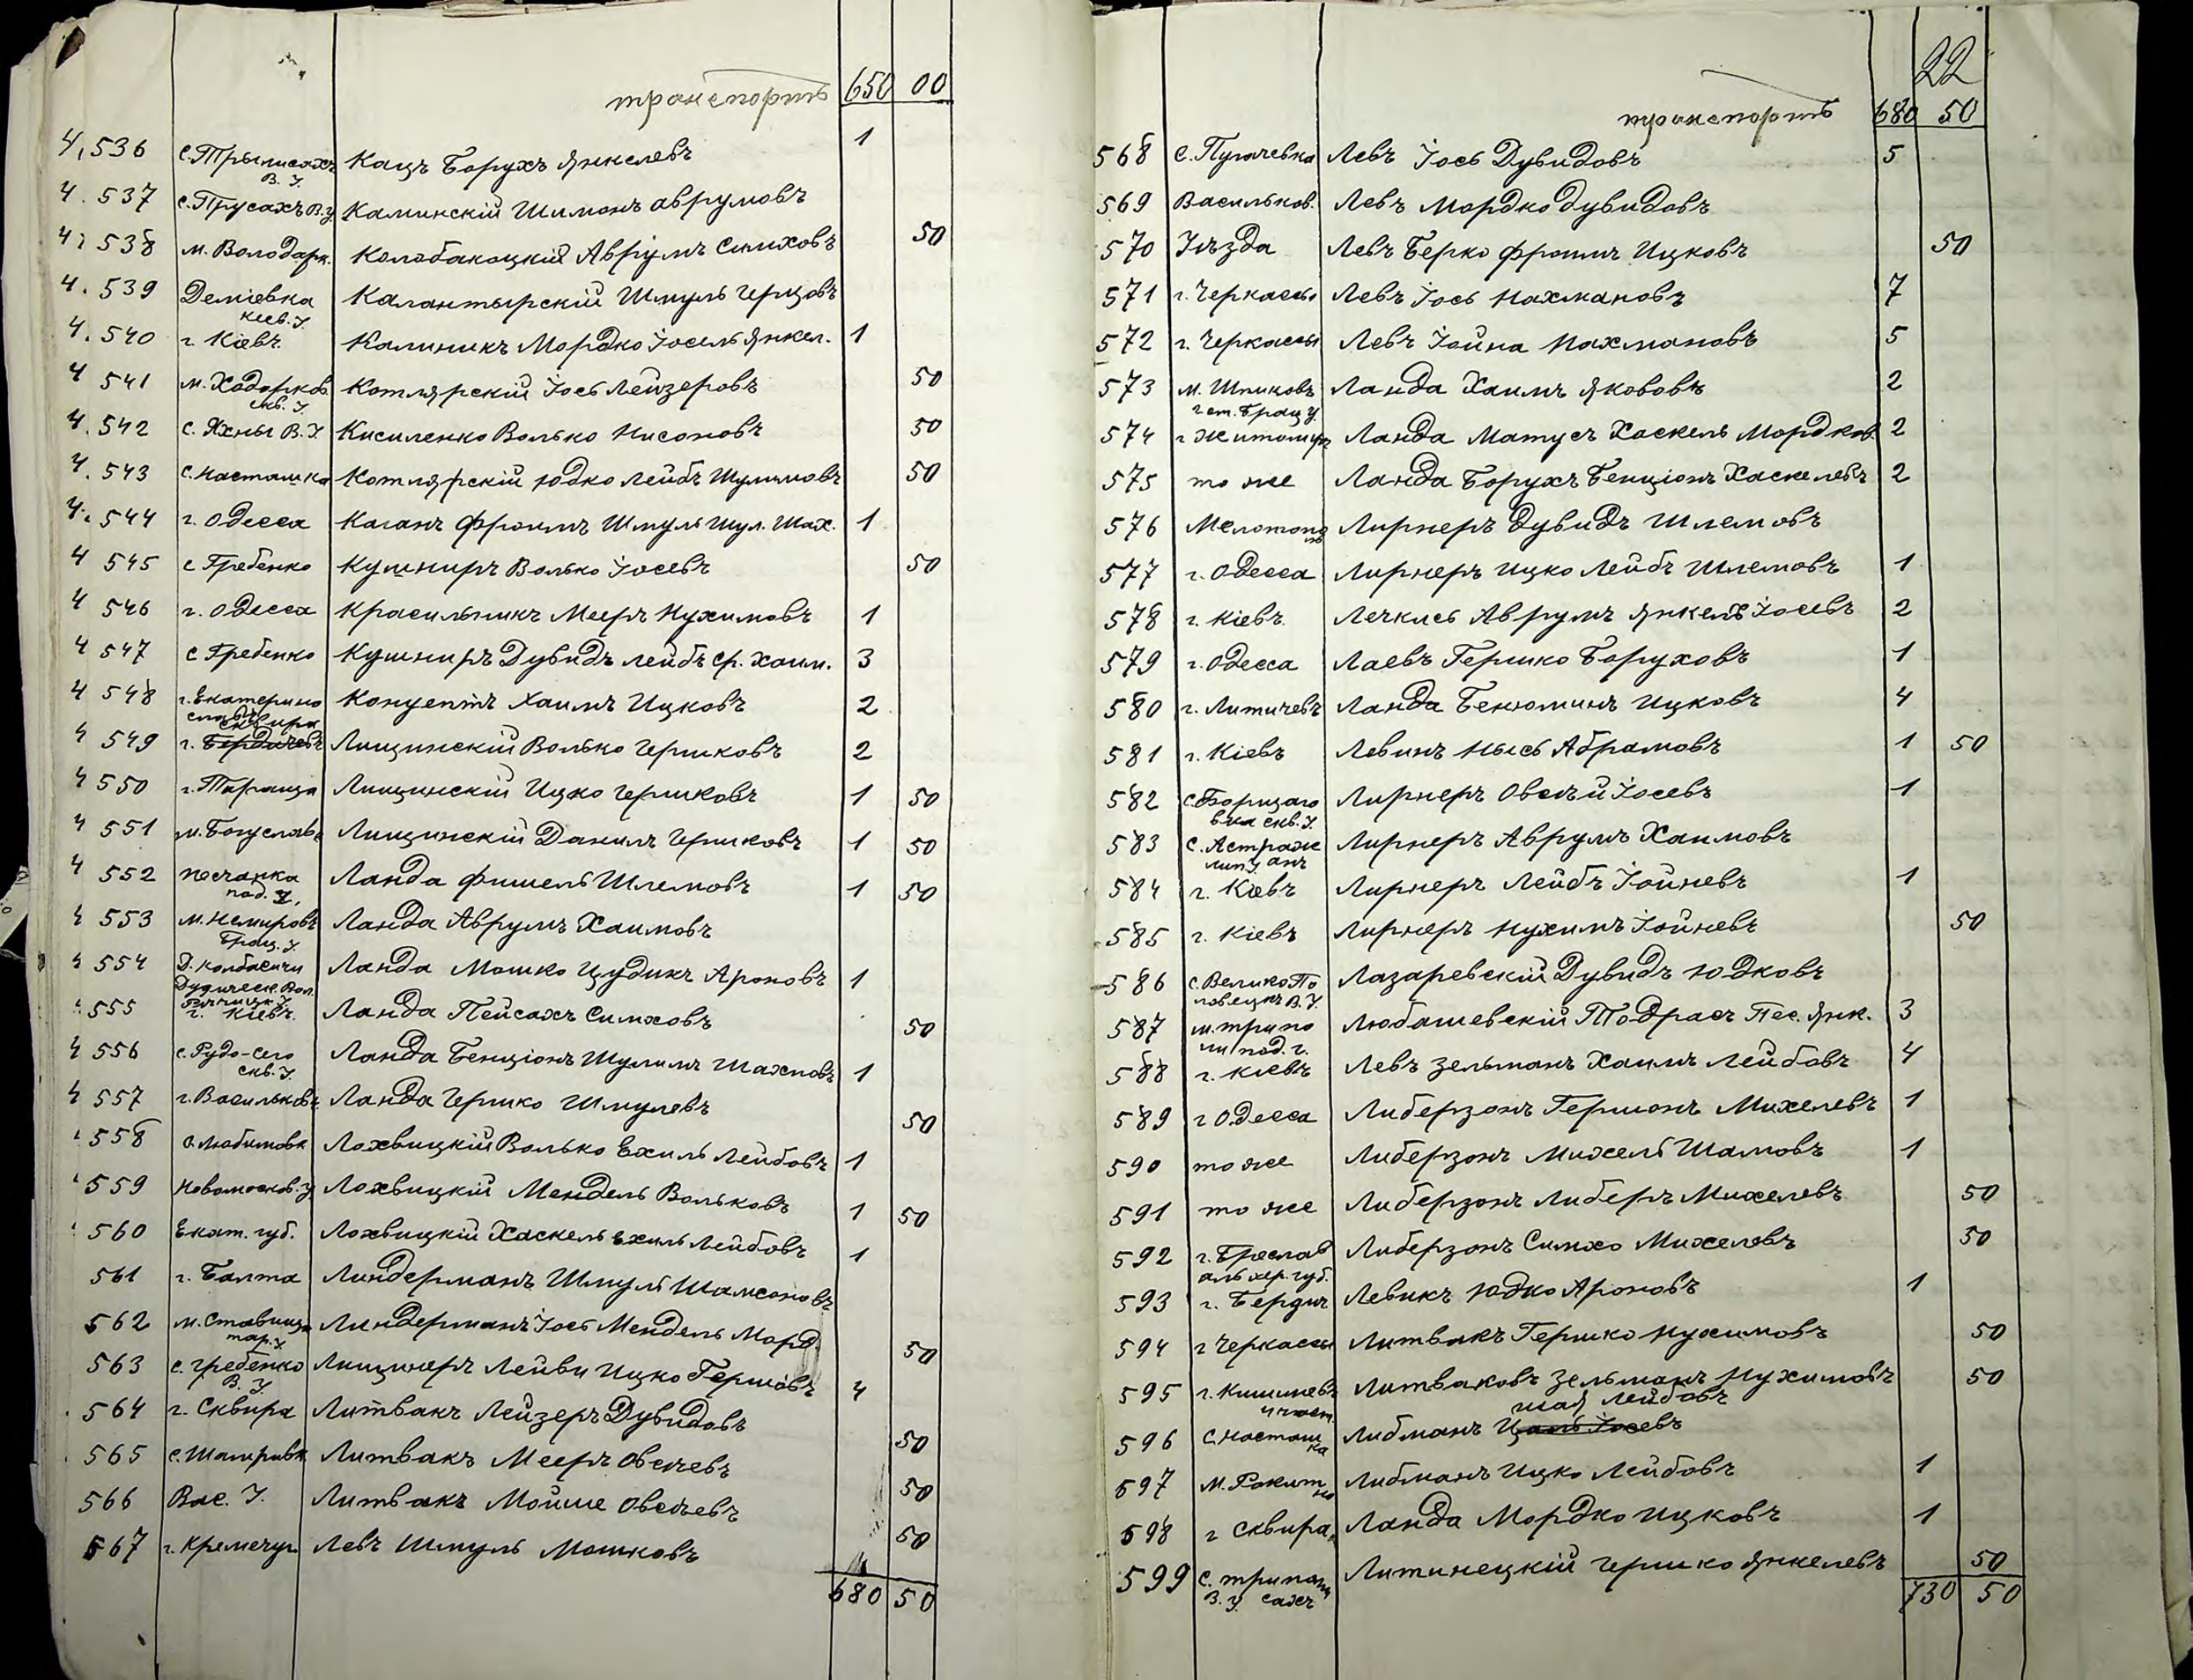 транспортъ 650 00
4. 536 с. Трылисахъ В. У. Кацъ Борухъ Янкелевъ 1
4. 537 с. Прусахъ В.У. Каминскій Шимонъ Аврумовъ
4. 538 м. Володарк. Колобакоцкій Аврумъ Симховъ 50
4. 539 Деміевка Кіев. У. Калантырскій Шмуль Герцовъ
4. 540 г Кіевъ Калиникъ Мордко Іосель Янкел. 1
4 541 м. Ходорков. скв. У. Котлярскій Іось Лейзеровъ 50
4. 542 с. Яхны В. У. Кисиленко Волько Нисоновъ 50
4. 543 с. Насташка Котлярскій Юдко Лейбъ Шулимовъ 50
4. 544 г. Одесса Каганъ Фроимъ Шмуль Шул. Шах. 1
4 545 с Гребенко Кушниръ Волько Іосевъ 50
4 546 г. Одесса Красильникъ Мееръ Нухимовъ 1
4 547 с Гребенко Кушниръ Дувидъ Лейбъ Ср. Хаим. 3
4 548 г. Екатерино славъ Концептъ Хаимъ Ицковъ 2
4 549 Сквира г. Бердичевъ Лищинскій Волько Гершковъ 2
4 550 г. Тараща Лищинскій Ицко Гершковъ 1 50
4 551 м. Богуславъ Лищинскій Данилъ Гершковъ 1 50
4 552 Песчанка под. У. Ланда Фишель Шлемовъ 1 50
4 553 м. Немировъ Брац. У. Ланда Аврумъ Хаимовъ
4 554 Д. Колбасичи Дудическ. Вол. У. Ланда Мошко Цудикъ Ароновъ 1
4 555 г. Кіевъ. Ланда Пейсахъ Симховъ 50
4 556 с. Рудо-Село скв. У. Ланда Бенціонъ Шулимъ Шахновъ 1
4 557 г. Васильковъ Ланда Гершко Шмулевъ 50
558 с. Любимовк Лохвицкій Волько Ехиль Лейбовъ 1
559 Новомосков. У Лохвицкій Мендель Вольковъ 1 50
560 Екат. губ. Лохвицкій Хаскель Ехиль Лейбовъ 1
561 г. Балта Линдерманъ Шмуль Шамсоновъ
562 м. Ставища тар. У Линдерманъ Іось Мендель Морд. 50
563 с. Гребенко В. У. Лищинеръ Лейви Ицко Гершовъ 4
564 г. Сквира Литвакъ Лейзеръ Дувидовъ
565 с. Шамривк Литвакъ Мееръ Овсеевъ 50
566 Вас. У. Литвакъ Мойше Овсеевъ 50
567 г. Кремечуг Левъ Шмуль Мошковъ 50
680 50
22
транспортъ 680 50
568 с. Пугачевка Левъ Іось Дувидовъ 5
569 Васильков. Левъ Мордко Дувидовъ
570 Уѣзда Левъ Берко Фроимъ Ицковъ 50
571 г. Черкассы Левъ Іось Нахмановъ 7
572 г. Черкассы Левъ Іойна Нахмановъ 5
573 м. Шпиковъ ст. Брац У. Ланда Хаимъ Якововъ 2
574 г Житомир Ланда Матусъ Хаскель Мордков. 2
575 то же Ланда Борухъ Бенціонъ Хаскелевъ 2
576 Мелотополь Лирнеръ Дувидъ Шлемовъ
577 г. Одесса Лирнеръ Ицко Лейбъ Шлемовъ 1
578 г. Кіевъ Лечкись Аврумъ Янкель Іосевъ 2
579 г. Одесса Лаевъ Гершко Боруховъ 1
580 г. Литичевъ Ланда Бенюминъ Ицковъ 4
581 г. Кіевъ Левинъ Нысь Абрамовъ 1 50
582 с. Борщаго вка скв. У. Лирнеръ Овсѣй Іосевъ 1
583 с. Лирнеръ Аврумъ Хаимовъ
584 г. Кіевъ Лирнеръ Лейбъ Іойневъ 1
585 г. Кіевъ Лирнеръ Нухимъ Іойневъ 50
586 с. Велико По ловецкъ В. У. Лазаревскій Дувидъ Юдковъ
587 м. трипо ли под. г. Любашевскій Тодрасъ Пес. Янк. 3
588 г. Кіевъ Левъ Зельманъ Хаимъ Лейбовъ 4
589 г Одесса Либерзонъ Гершонъ Михелевъ 1
590 то же Либерзонъ Михель Шамовъ 1
591 то же Либерзонъ Либеръ Михелевъ 50
592 г. Бреслав аль хер. губ. Либерзонъ Симхо Михелевъ 50
593 г. Бердич Левикъ Юдко Ароновъ 1
594 г Черкассы Литвакъ Гершко Нухимовъ 50
595 г. Кишинев Литваковъ Зельманъ Нухимовъ 50
596 с. Насташ ка Либманъ Шая Лейбовъ
597 м. Ракит но Либманъ Ицко Лейбовъ 1
598 г Сквира Ланда Мордко Ицковъ 1
599 с. В. У. Литинецкій Гершко Янкелевъ 50
730 50